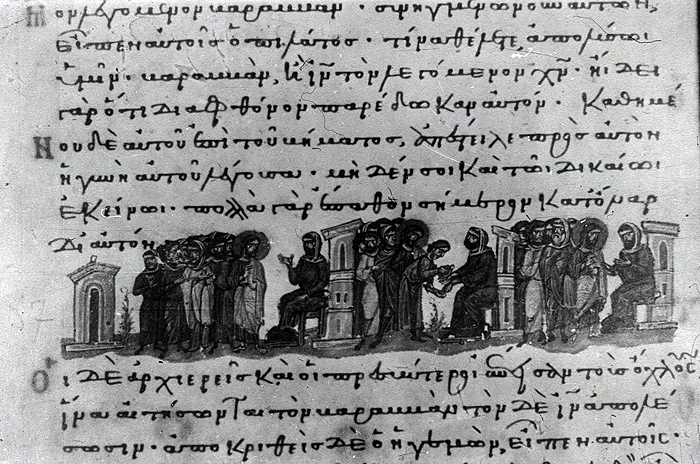 μον λεγόμενον βαραββάν · συνηγμένων οὖν αὐτῶν,
εἶπεν αὐτοῖς ὁ πιλάτος · τίνα θέλετε ἀπολύσω
ὑμῖν · βαραββάν, ἢ ἰν τὸν λεγόμενον χν · ἤδει
γὰρ ὅτι διὰ φθόνον παρέδωκαν αὐτόν · Καθημέ
Νου δὲ αὐτοῦ ἐπὶ τοῦ βήματος, ἀπέστειλε πρὸς αὐτὸν
ἡ γυνὴ αὐτοῦ λέγουσα · μηδέν σοι καὶ τῶι δικαίωι
ἐκείνωι · πολλὰ γὰρ ἔπαθον σήμερον κατόναρ
δι αὐτόν
Οἱ δὲ ἀρχιερεῖς καὶ οἱ πρεσβύτεροι τοὺς ὄχλους
ἵνα αἰτήσωνται τὸν βαραββὰν τὸν δὲ ἰν ἀπολέ
σωσιν · ἀποκριθεὶς δὲ ὁ ἡγεμὼν, εἶπεν αὐτοῖς ·